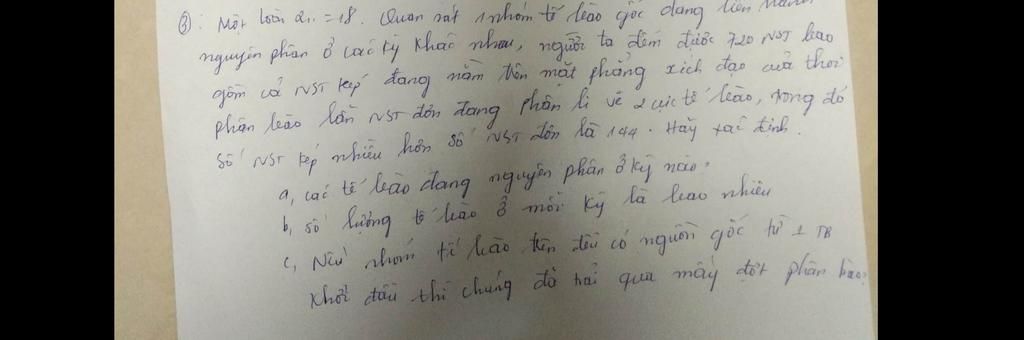 ③: Một loài 2n = 18. Quan sát 1 nhóm tế bào gốc đang tiến hành
nguyên phân ở các kỳ khác nhau, người ta đếm được 720 NST bao
gồm cả NST kép đang nằm trên mặt phẳng xích đạo của thoi
phân bào lẫn NST đơn đang phân li về 2 cực tế bào, trong đó
số NST kép nhiều hơn số NST đơn là 144. Hãy xác định.
a, các tế bào đang nguyên phân ở kỳ nào?
b, số lượng tế bào ở mỗi kỳ là bao nhiêu
c, Nếu nhóm tế bào trên đều có nguồn gốc từ 1 TB
khởi đầu thì chúng đã trải qua mấy đợt phân bào?